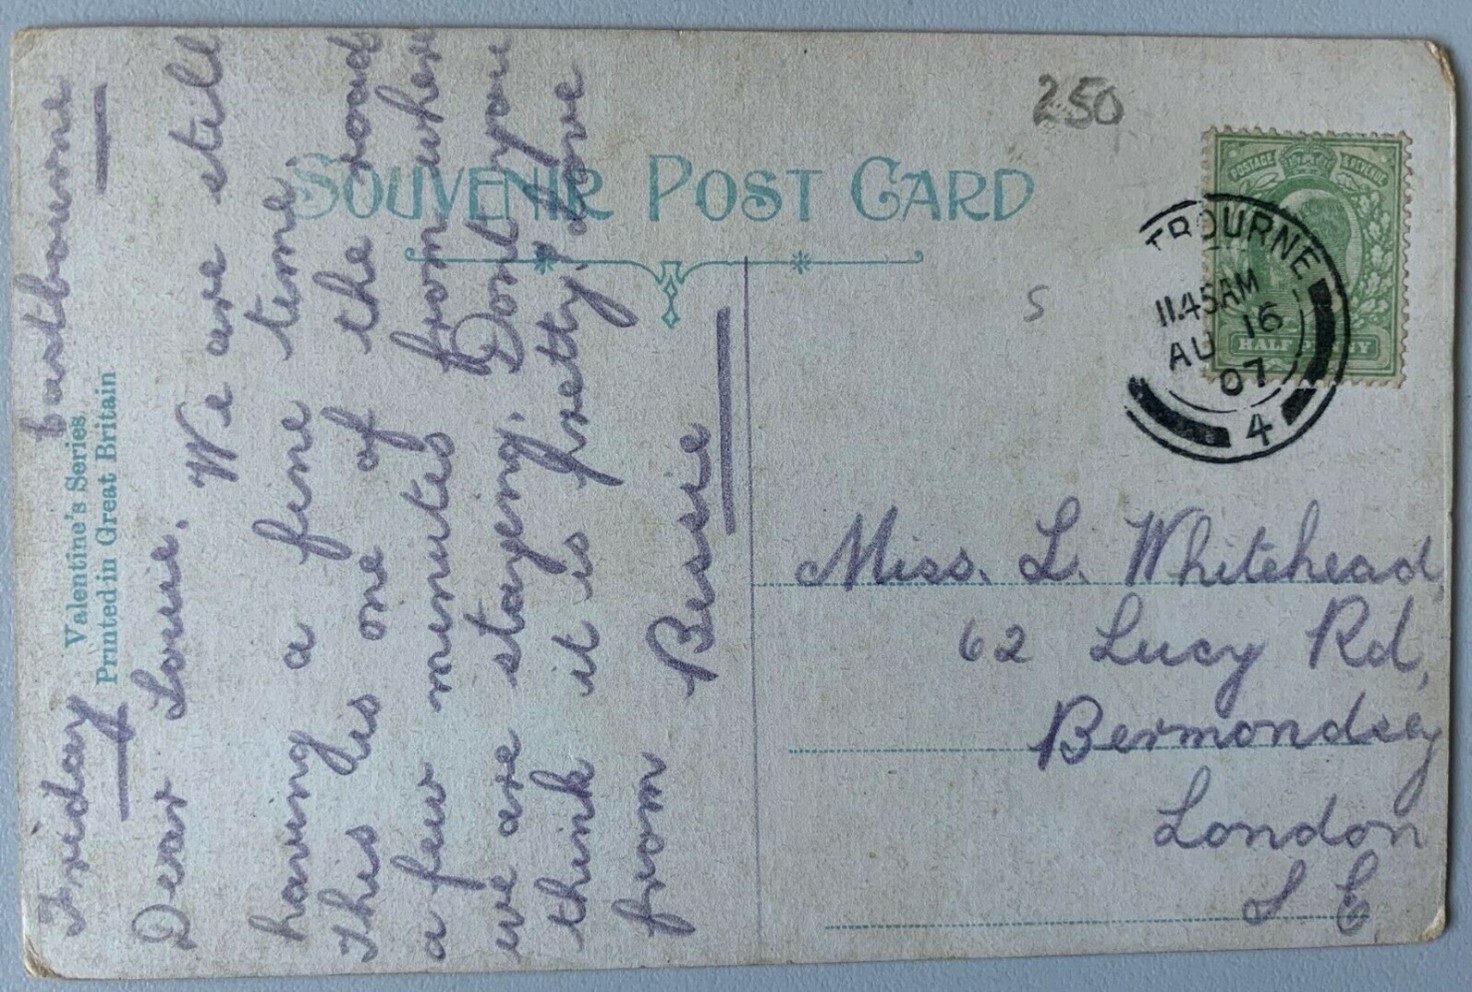 SOUVENIR POST CARD
Valentine's Series
Printed in Great Britain
Friday Eastbourne
Dear Louie. We are still
having a fine time
This is one of the road
a few minutes from where
we are staying. Dont you
think it is pretty, love
from Bessie
250
5
POSTAGE & REVENUE
HALF PENNY
TBOURNE
11.45AM
AU 16
07
4
Miss. L. Whitehead,
62 Lucy Rd,
Bermondsey
London
S E.